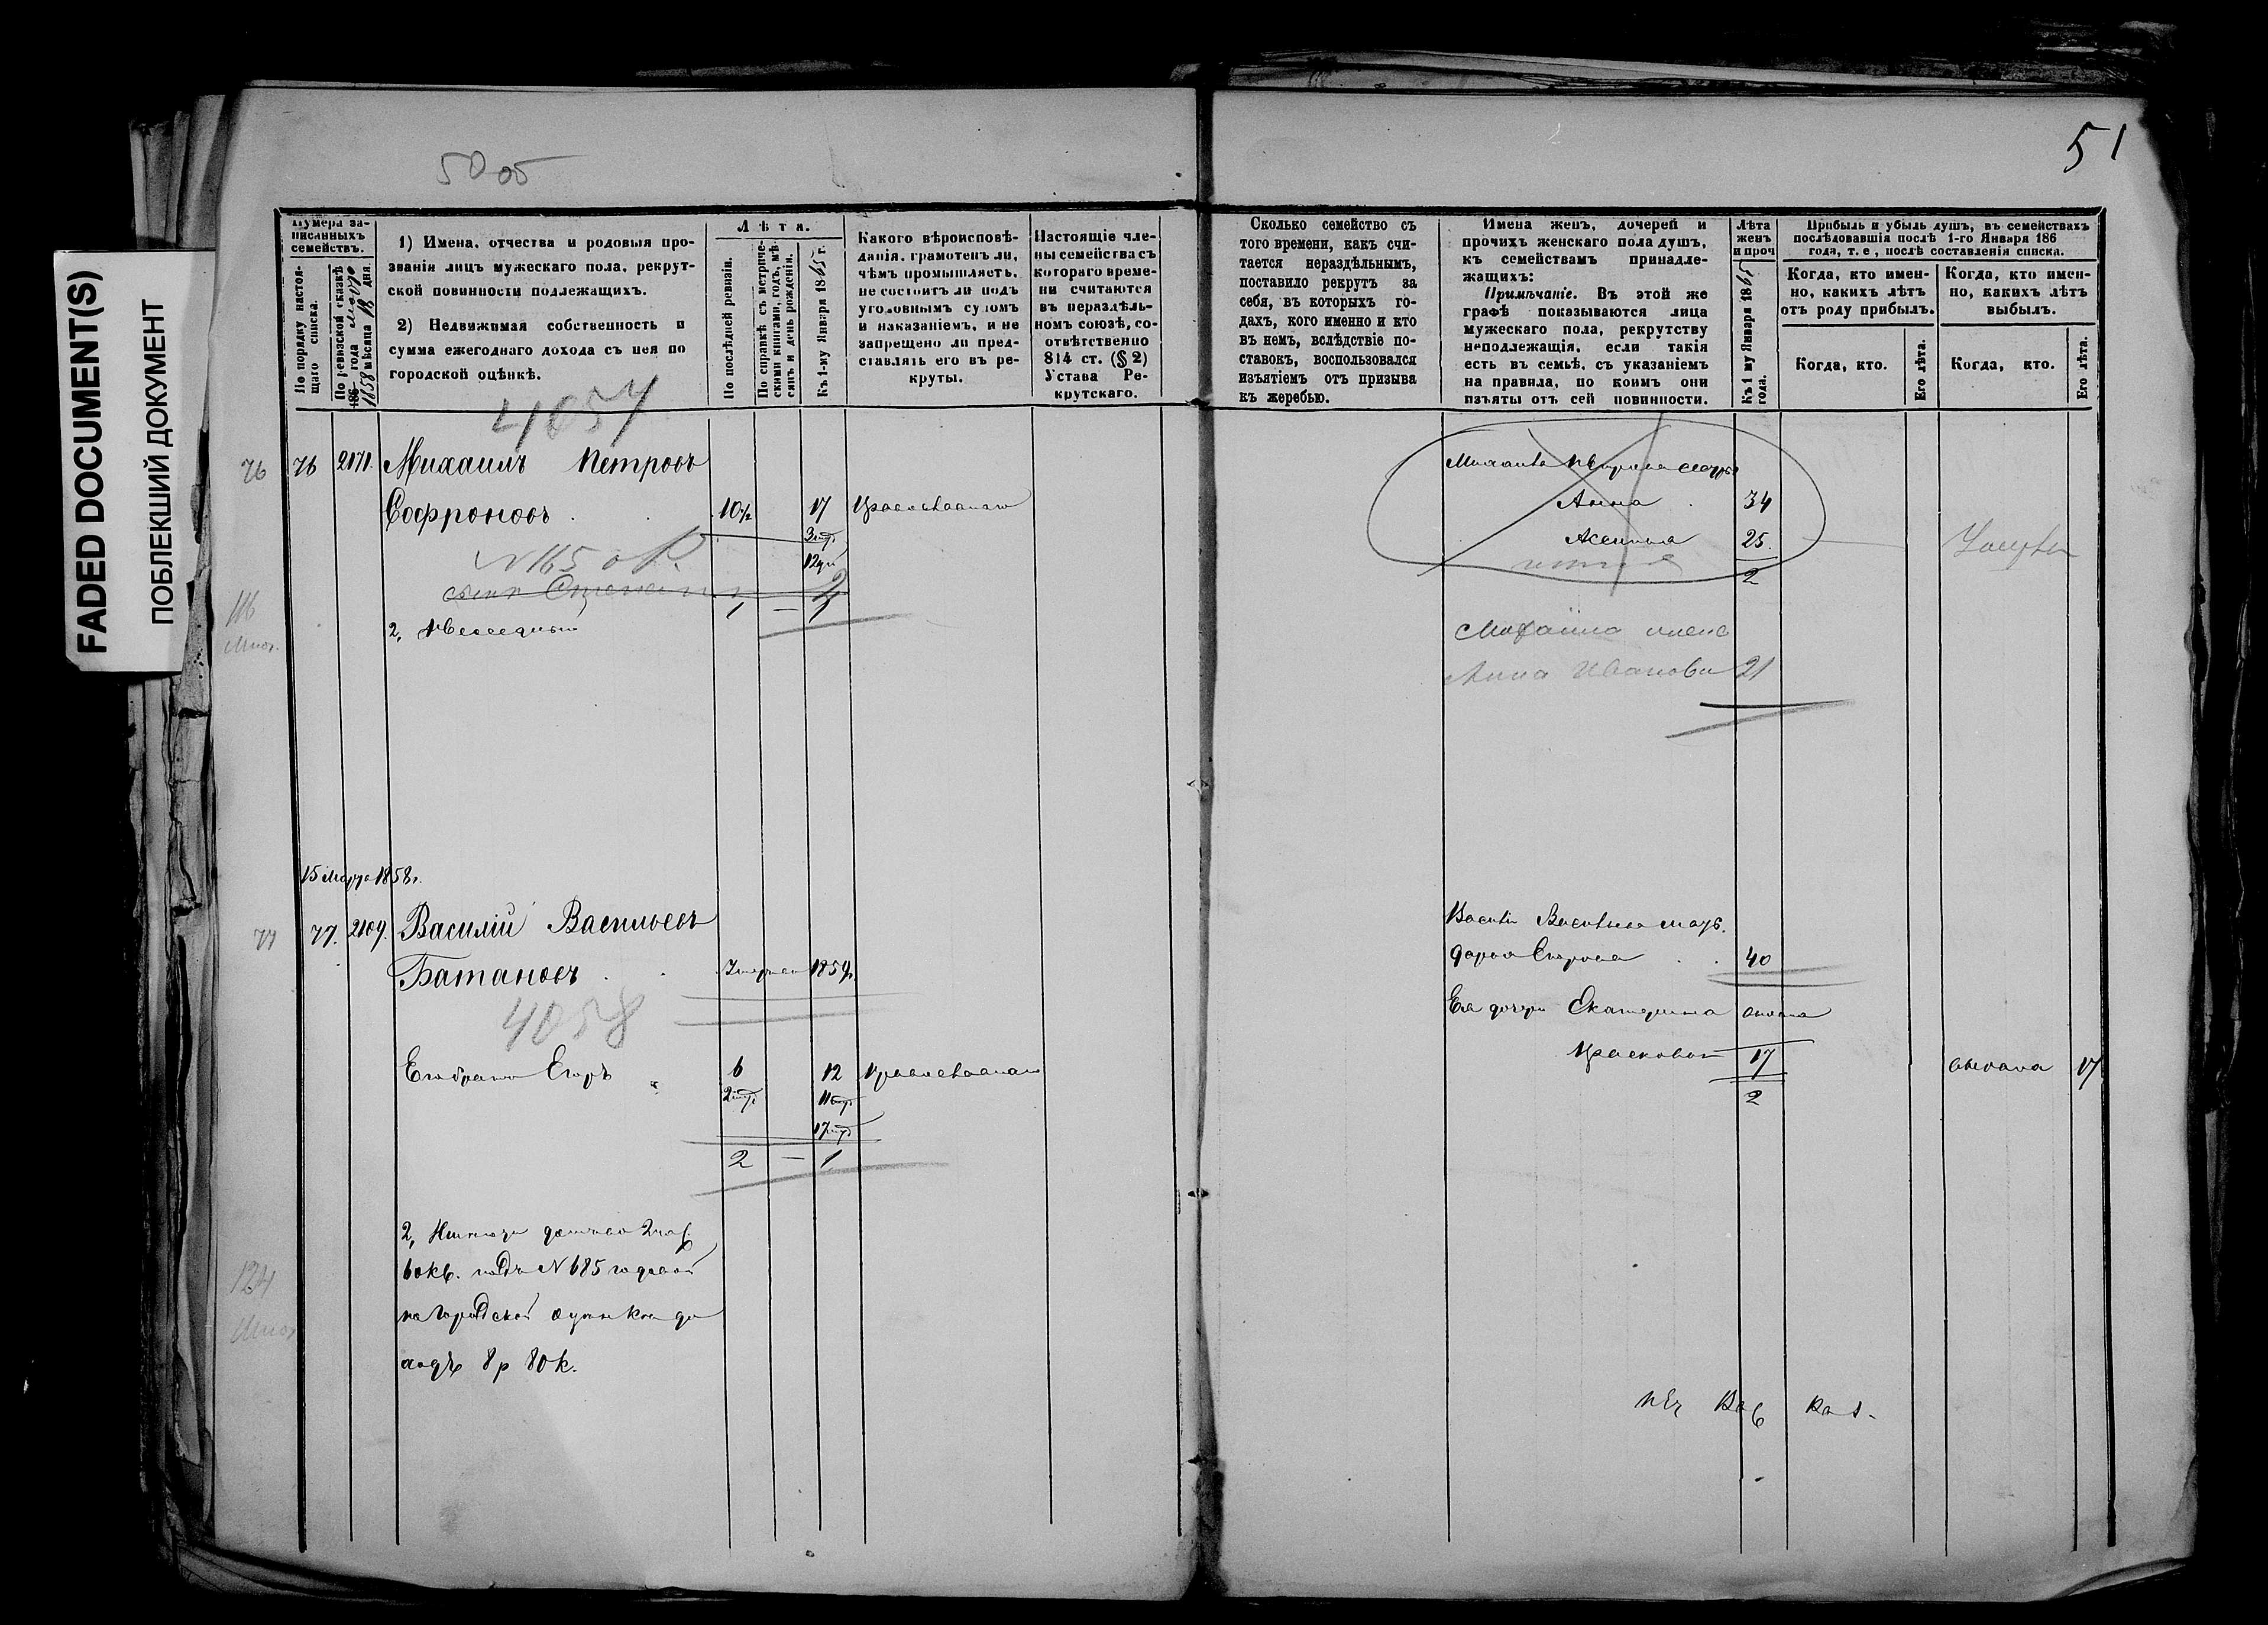 FADED DOCUMENT(S)
ПОБЛЕКШИЙ ДОКУМЕНТ
50 об
51
Нумера за-
писанныхъ
семействъ.
По порядку настоя-
щаго списка.
По ревизской сказкѣ
186 года Марта
1858 мѣсяца 18 дня.
1) Имена, отчества и родовыя про-
званія лицъ мужескаго пола, рекрут-
ской повинности подлежащихъ.
2) Недвижимая собственность и
сумма ежегоднаго дохода съ нея по
городской оцѣнкѣ.
Лѣта.
По послѣдней ревизіи.
По справкѣ съ метриче-
скими книгами, годъ, мѣ-
сяцъ и день рожденія.
Къ 1-му Января 1865 г.
Какого вѣроисповѣ-
данія, грамотенъ ли,
чѣмъ промышляетъ,
не состоитъ ли подъ
уголовнымъ судомъ
и наказаніемъ, и не
запрещено ли пред-
ставлять его въ ре-
круты.
Настоящіе чле-
ны семейства съ
котораго време-
ни считаются
въ нераздѣль-
номъ союзѣ, со-
отвѣтственно
814 ст. (§ 2)
Устава Ре-
крутскаго.
Сколько семейство съ
того времени, какъ счи-
тается нераздѣльнымъ,
поставило рекрутъ за
себя, въ которыхъ го-
дахъ, кого именно и кто
въ немъ, вслѣдствіе по-
ставокъ, воспользовался
изъятіемъ отъ призыва
къ жеребью.
Имена женъ, дочерей и
прочихъ женскаго пола душъ,
къ семействамъ принадле-
жащихъ:
Примѣчаніе. Въ этой же
графѣ показываются лица
мужескаго пола, рекрутству
неподлежащія, если такія
есть въ семьѣ, съ указаніемъ
на правила, по коимъ они
изъяты отъ сей повинности.
Лѣта
женъ
и проч
Къ 1 му Января 1865
года.
Прибыль и убыль душъ, въ семействахъ
послѣдовавшія послѣ 1-го Января 186
года, т. е, послѣ составленія списка.
Когда, кто имен-
но, какихъ лѣтъ
отъ роду прибылъ.
Когда, кто имен-
но, какихъ лѣтъ
выбылъ.
Когда, кто.
Его лѣта.
Когда, кто.
Его лѣта.
4057
76 76 2171. Михаилъ Петровъ
Софроновъ 10½ 17 Православнаго
N 165
сынъ Степанъ
1 — 1
116
2,
Михаила Петрова сестры
Анна 34
Аксинья 25
2
Михаила жена
Анна Иванова 21
15 Марта 1858 г.
77 77. 2109. Василій Васильевъ
Батановъ 1859
4058
Его братъ Егоръ 6 12 Православнаго
2 — 1
2,
6 окв. подъ N 685
по городской оцѣнкѣ до
ходъ 8 р 80 к.
124
Василія Васильева мать
Дарья Егорова 40
Ея дочери Екатерина выдана
Прасковья 17 выдана 17
2